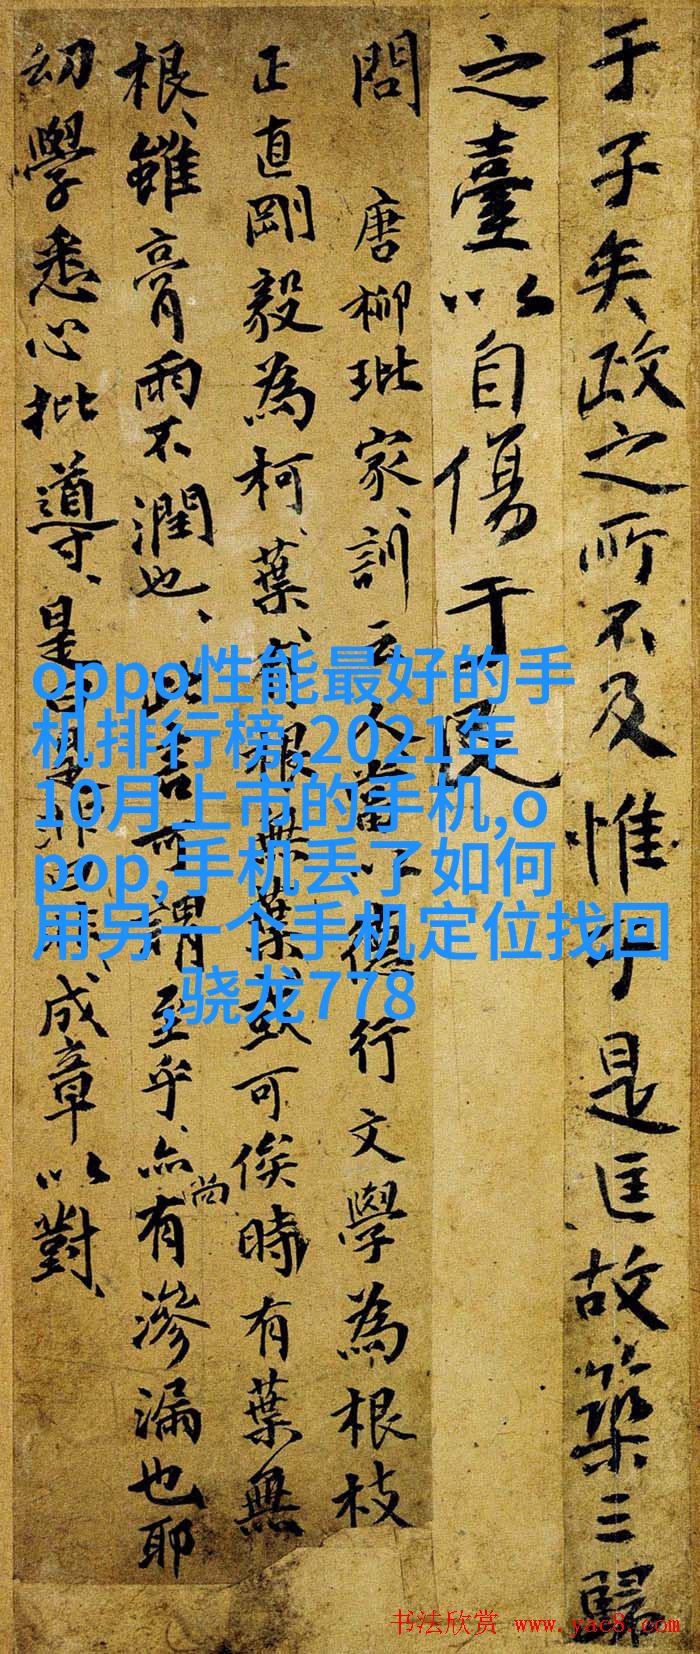 于子矣政之所不及惟于是匡故築三歸
之臺以自傷于民
問 唐柳玭家訓云人當以德行文學為根枝
正直剛毅為柯葉有根無葉或可俟時有葉無
根雖膏雨不潤也此言可謂至乎亦尚有滲漏也耶
幼學悉心批導是曰是非曰非成章以對
oppo性能最好的手
机排行榜,2021年
10月上市的手机,o
pop,手机丢了如何
用另一个手机定位找回
,骁龙778
书法欣赏 www.yac8.com